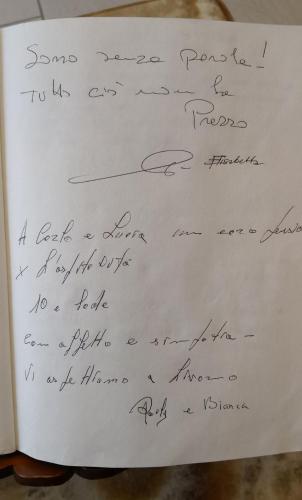 Sono senza parole!
Tutto ciò non ha
Prezzo
Elisabetta
A Carlo e Lucia un caro
x L'ospitalità
10 e lode
con affetto e simpatia -
Vi aspettiamo a Livorno
e Bianca